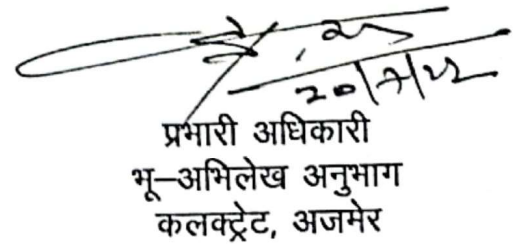 20/7/22
प्रभारी अधिकारी
भू–अभिलेख अनुभाग
कलक्ट्रेट, अजमेर